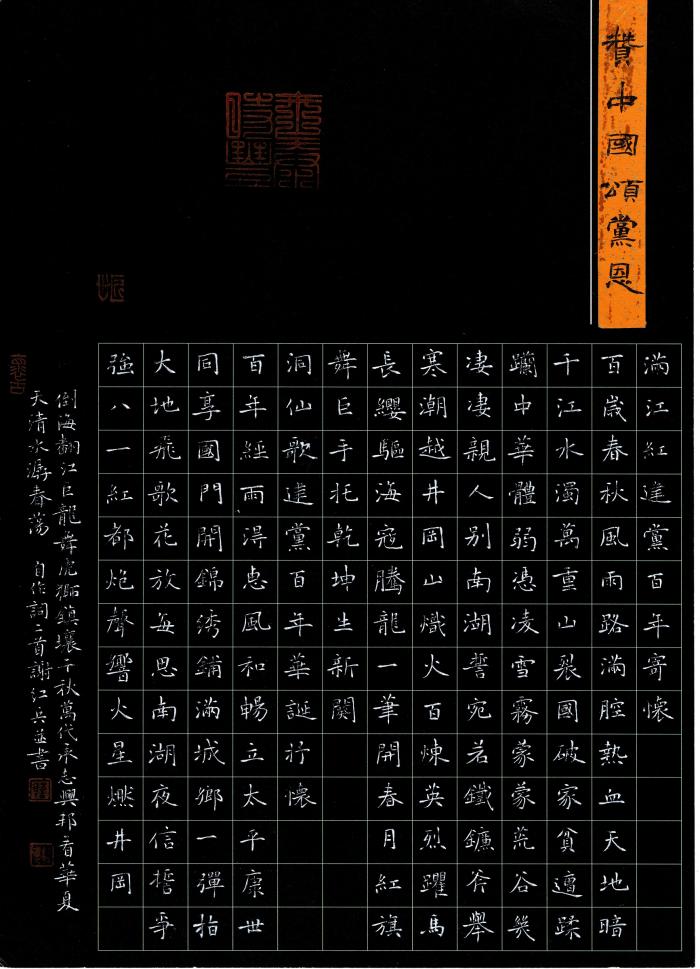 贊中國頌黨恩
滿江紅建黨百年寄懷
百歲春秋風雨路滿腔熱血天地暗
千江水濁萬重山裂國破家貧遭蹂
躪中華體弱憑凌雪霧蒙蒙荒谷幾
淒淒親人別南湖誓宛若鐵鐮斧舉
寒潮越井岡山熾火百煉英烈躍馬
長纓驅海寇騰龍一筆開春月紅旗
舞巨手托乾坤生新闕
洞仙歌建黨百年華誕抒懷
百年經雨得惠風和暢立太平康世
同享國門開錦綉鋪滿城鄉一彈指
大地飛歌花放每思南湖夜信誓爭
強八一紅都炮聲響火星燃井岡
倒海翻江巨龍舞虎獅鎮壤千秋萬代承志興邦看華夏
天清水潺春蕩 自作詞二首謝紅兵並書